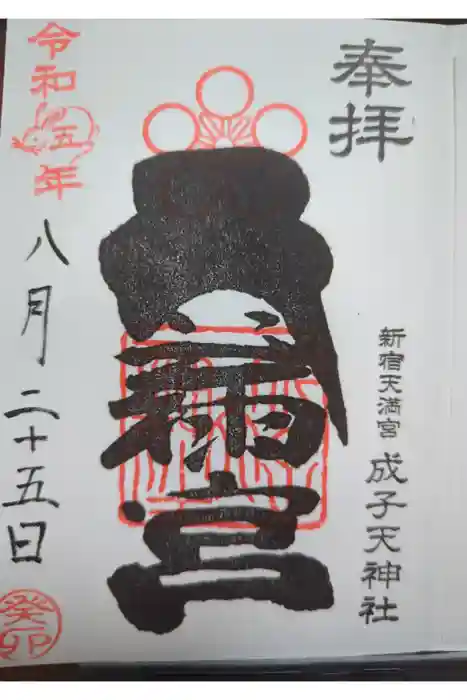 奉拝
新宿天満宮
成子天神社
令和五年
八月二十五日
癸卯